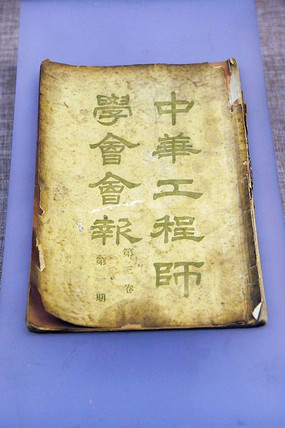 中華工程師
學會會報
第三卷
第 期